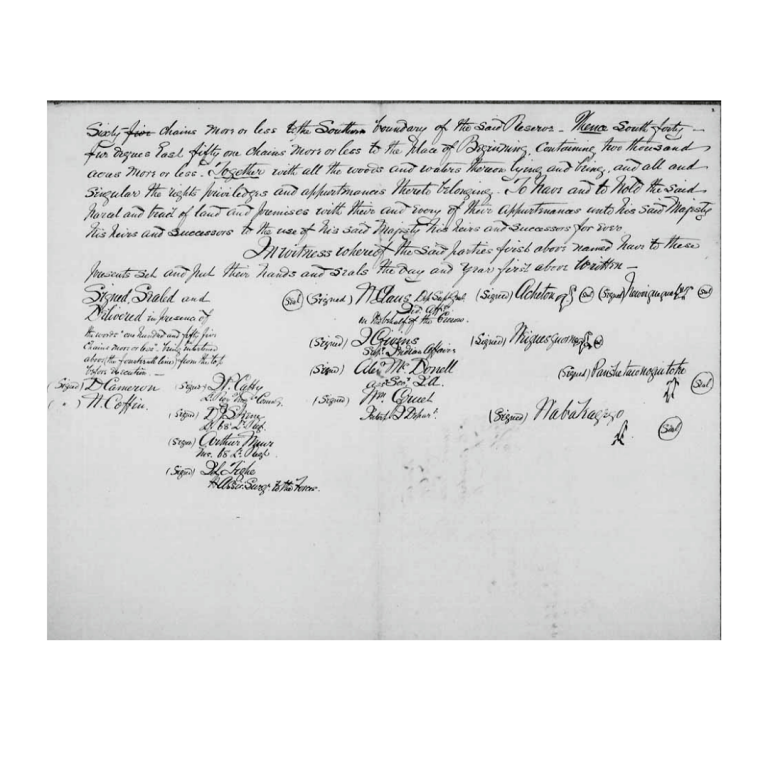 Sixty five chains more or less to the Southern boundary of the said Reserve – Thence South forty –
five degrees East fifty one chains more or less to the Place of Beginning, Containing two thousand
acres more or less. Together with all the woods and waters thereon lying and being, and all and
Singular the rights priviledges and appurtenances thereto belonging. To have and to hold the said
parcel and tract of land and premises with their and every of their appurtenances unto his said Majesty
his heirs and successors to the use of his said Majesty his heirs and successors for ever
In witness whereof the said parties first above named have to these
presents set and put their hands and seals the day and year first above written –
Signed, Sealed and
Delivered in presence of
the words "one hundred and fifty five
Chains more or less" being interlined
above the fourteenth line from the top
before execution. –
(Signed) D Cameron
( ) N. Coffin.
(Signed)
(Signed)
Lt 68 Lt. Regt.
(Signed) Arthur Muir
68 Lt Regt
(Signed) Tighe
Assis. Surgn to the Forces.
Seal (Signed) W Claus Dep Sup Genl
Ind. Affrs
on the behalf of the Crown.
(Signed) J Givins
Supt Indian Affairs
(Signed) Alexr McDonell
(Signed) Wm Gruet
(Signed) Acheton Seal
(Signed) Seal
(Signed)
(Signed) Seal
(Signed) Seal